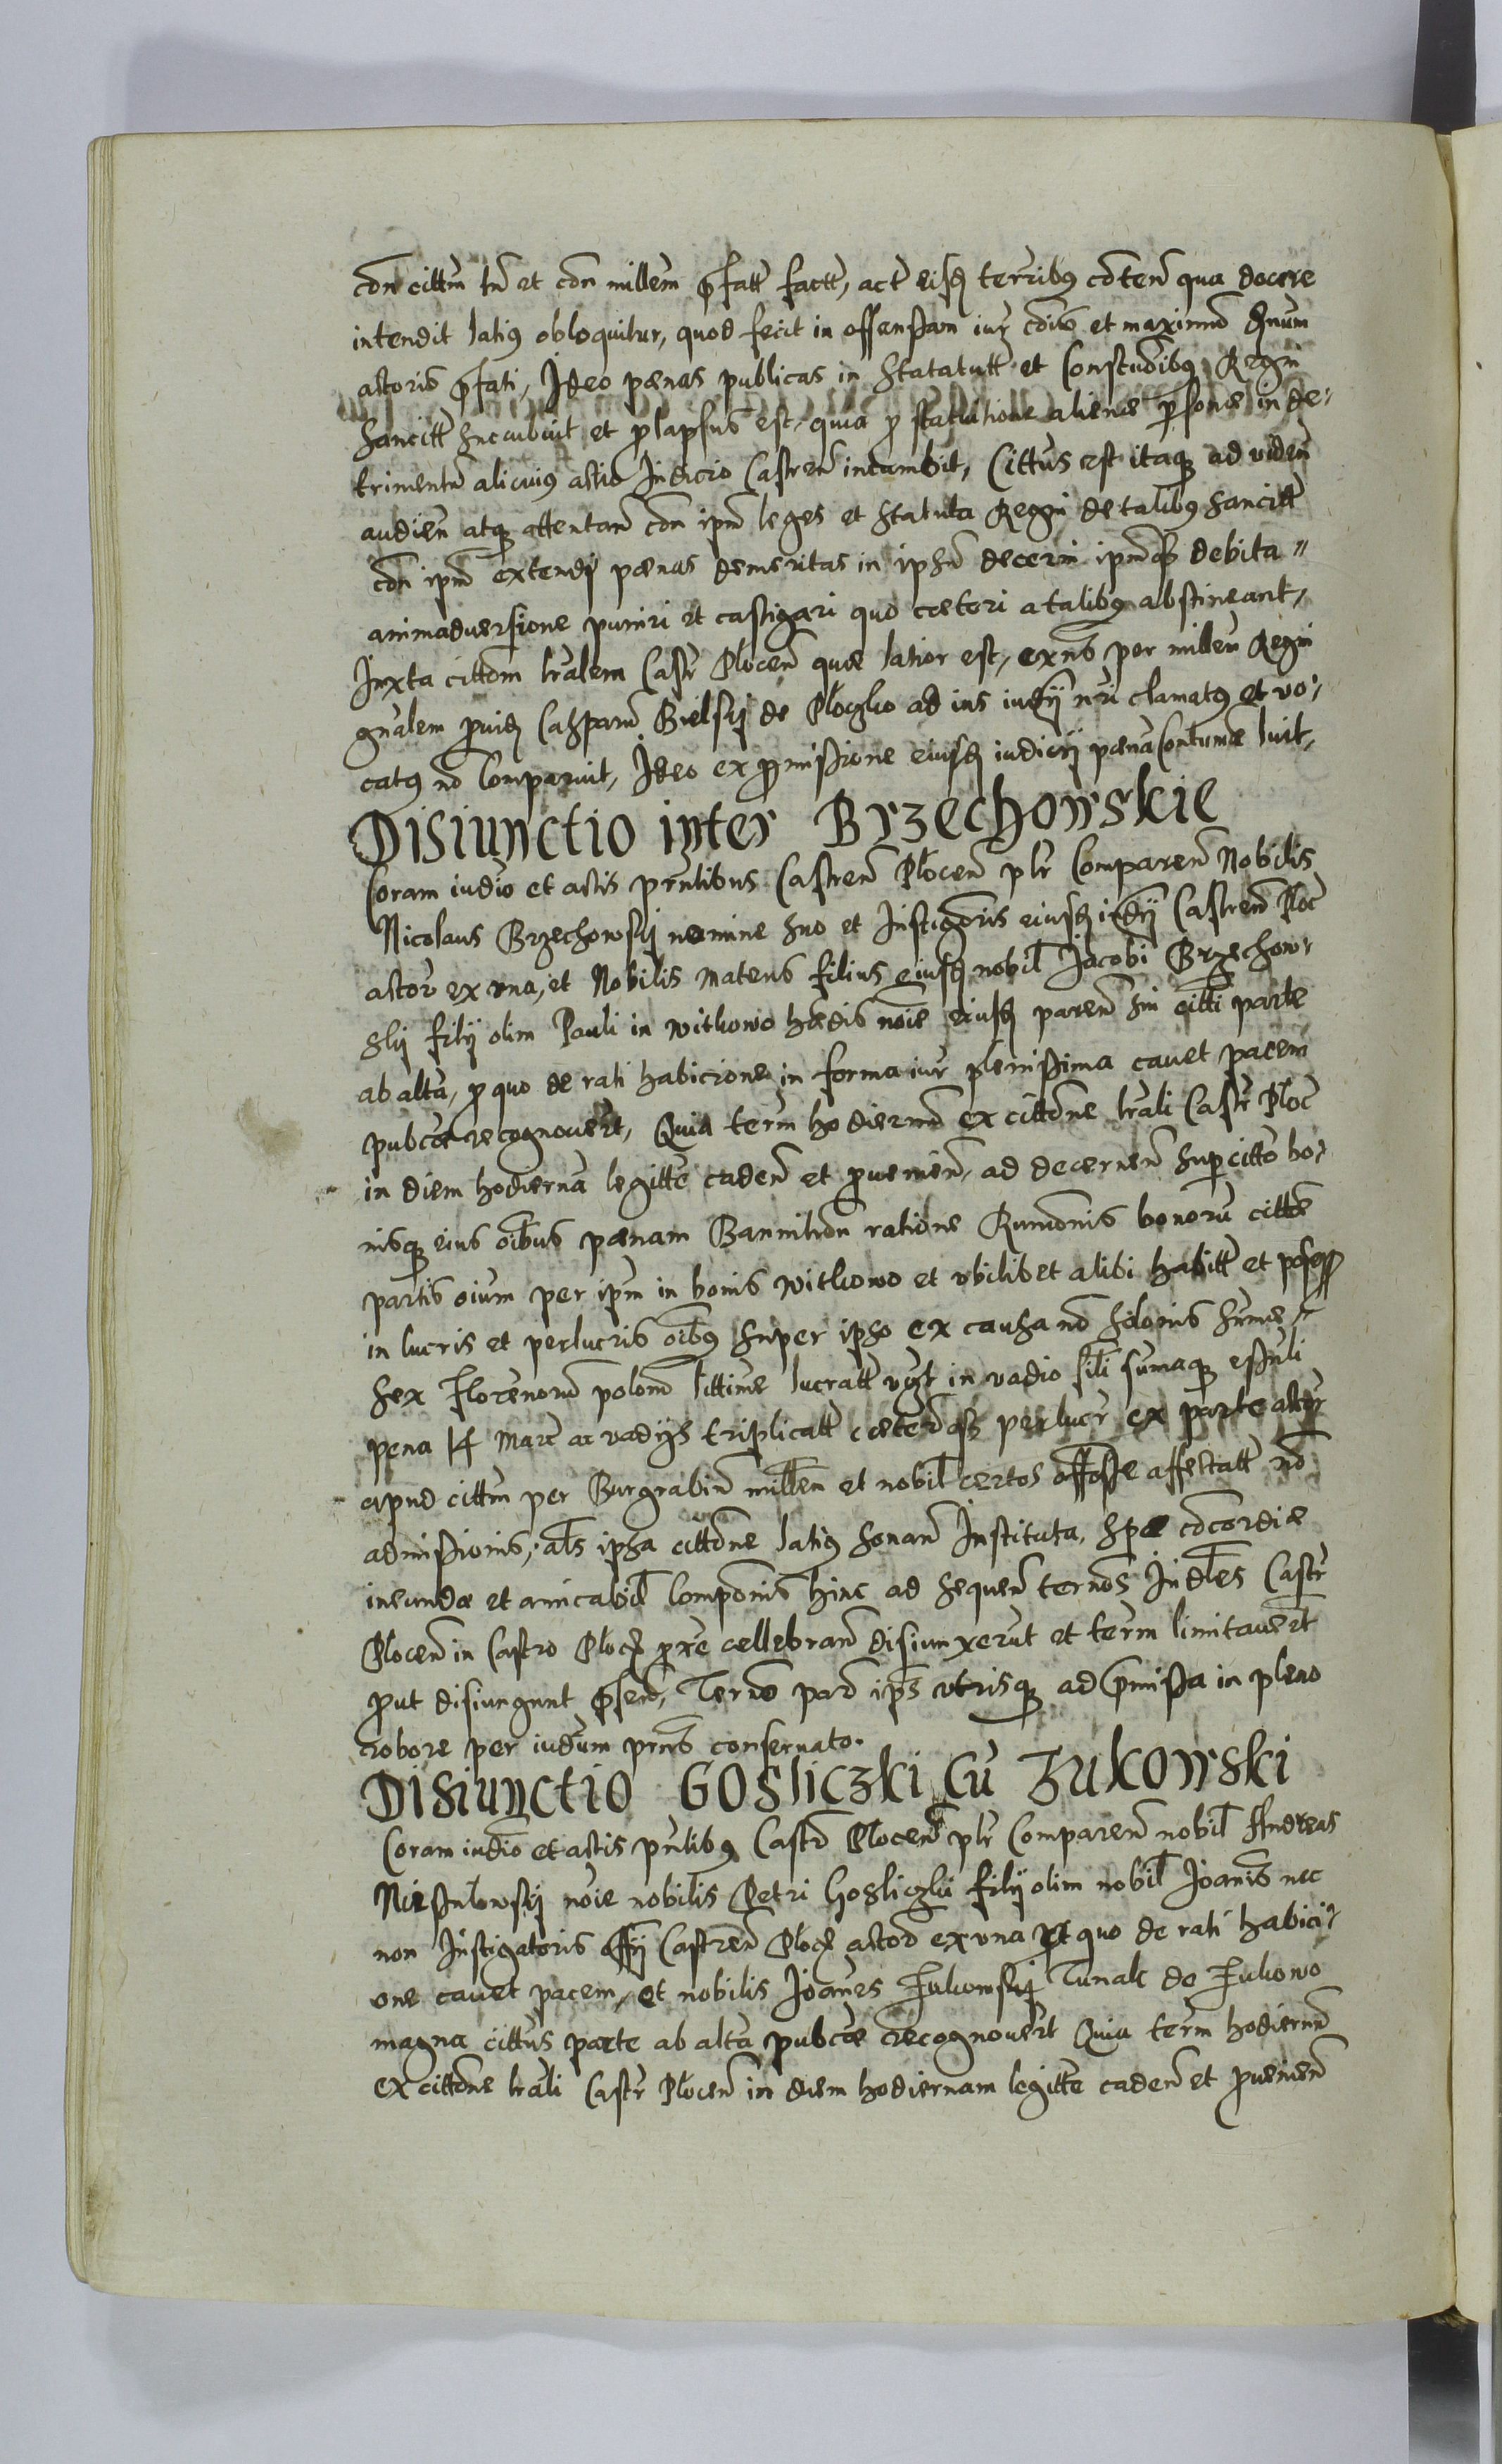 con cittm tn et con millem pfatt factt, act eisd terribus conten qua docere
intendit latius obloquitur, quod fecit in offensam iur cois et maximu dnum
actoris pfati, Ideo poenas publicas in Statatutt et Constudibus Regni
Sancitt Incubuit et prolapsus est, quia p statutione alienae personae in de-
trimentu alicuius actis Iudicio Castren incumbit, Cittus est itaque ad viden
audien atque attentan con ipm leges et Statuta Regni de talibus Sancitt
con ipm extendj poenas demeritas in ipsu decerni ipmque debita
animadversione puniri et castigari quo coeteri a talibus abstineant,
Juxta cittom lralem Castr Plocen quae latior est, exns per millem Regni
gnalem prouid Casparu Bielskj de Ploczko ad ius iudij nri clamatus et vo-
catus no Comparuit, Ideo ex promissione eiusd iudicij poena Contumae luit,
Disiunctio inter Brzechowskie
Coram iudio et actis pntibus Castren Plocen plr Comparen Nobilis
Nicolaus Brzechowskj nomine suo et Instigoris eiusd iudij Castren Ploc
actor ex vna, et Nobilis Mateus filius eiusd nobil Jacobi Brzechow-
skj filij olim Pauli in Witkowo haedis noie eiusd paren sui citti parte
ab alta, p quo de rati habicione in forma iur plenissima cavet pacem
pubcae recognouert, Quia term hodiernu ex cittone lrali Castr Ploc
in diem hodierna legitte caden et prouenien, ad decernen super citto bo-
nisque eius oibus poenam Bannitionu ratione Rumonis bonoru citte
partis oium per ipm in bonis Witkowo et vbilibet alibi habitt et possess
in lucris et perlucris oibus super ipso ex causa no Solonis Sume
Sex Florenoru polon littime lucratt vgt in vadio sili sumaque
pena 14 marc ac vadijs triplicatt coeterosque perlucr ex parte actor
apud cittm per Burgrabiu millem et nobil certos offose affectatt no
admissionis, als ipsa cittone latius sonan Instituta, spae concordiae
ineundae et amicabil Componis hinc ad sequen ternos Judles Castr
Plocen in Castro Plocz proxe cellebran disiunxerut et term limitauert
prout disiungunt psen, Terno pard ips vtrisque ad pmissa in pleno
robore per iudum prns conseruato.
Disiunctio Gosliczki cu Zukowski
Coram iudio et actis pntibus Castr Plocen plr Comparen nobil Andreas
noie nobilis Petri Gosliczki filij olim nobil Joanis nec
non Instigatoris offij Castren Plocz actor ex vna pt quo de rati habici-
one cauet pacem, et nobilis Joanes Zukowskj Tunak de Zukowo
magna cittus parte ab alta pubcae recognouert Quia term hodiernu
ex cittone lrali Castr Plocen in diem hodiernam legitte caden et prouenien